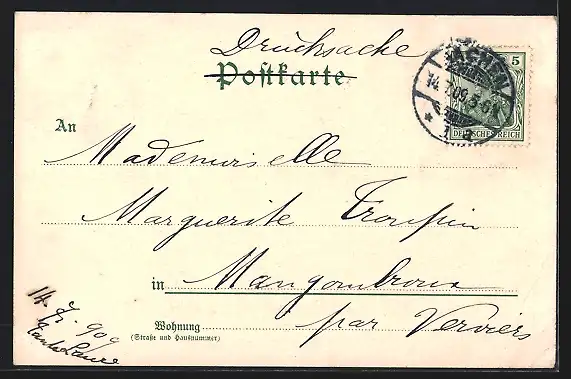 Drucksache
Postkarte
AACHEN
14.7.09
5
DEUTSCHES REICH
An
Mademoiselle
Marguerite
in Mangombroux
Wohnung par Verviers
(Straße und Hausnummer)
14. 7. 909